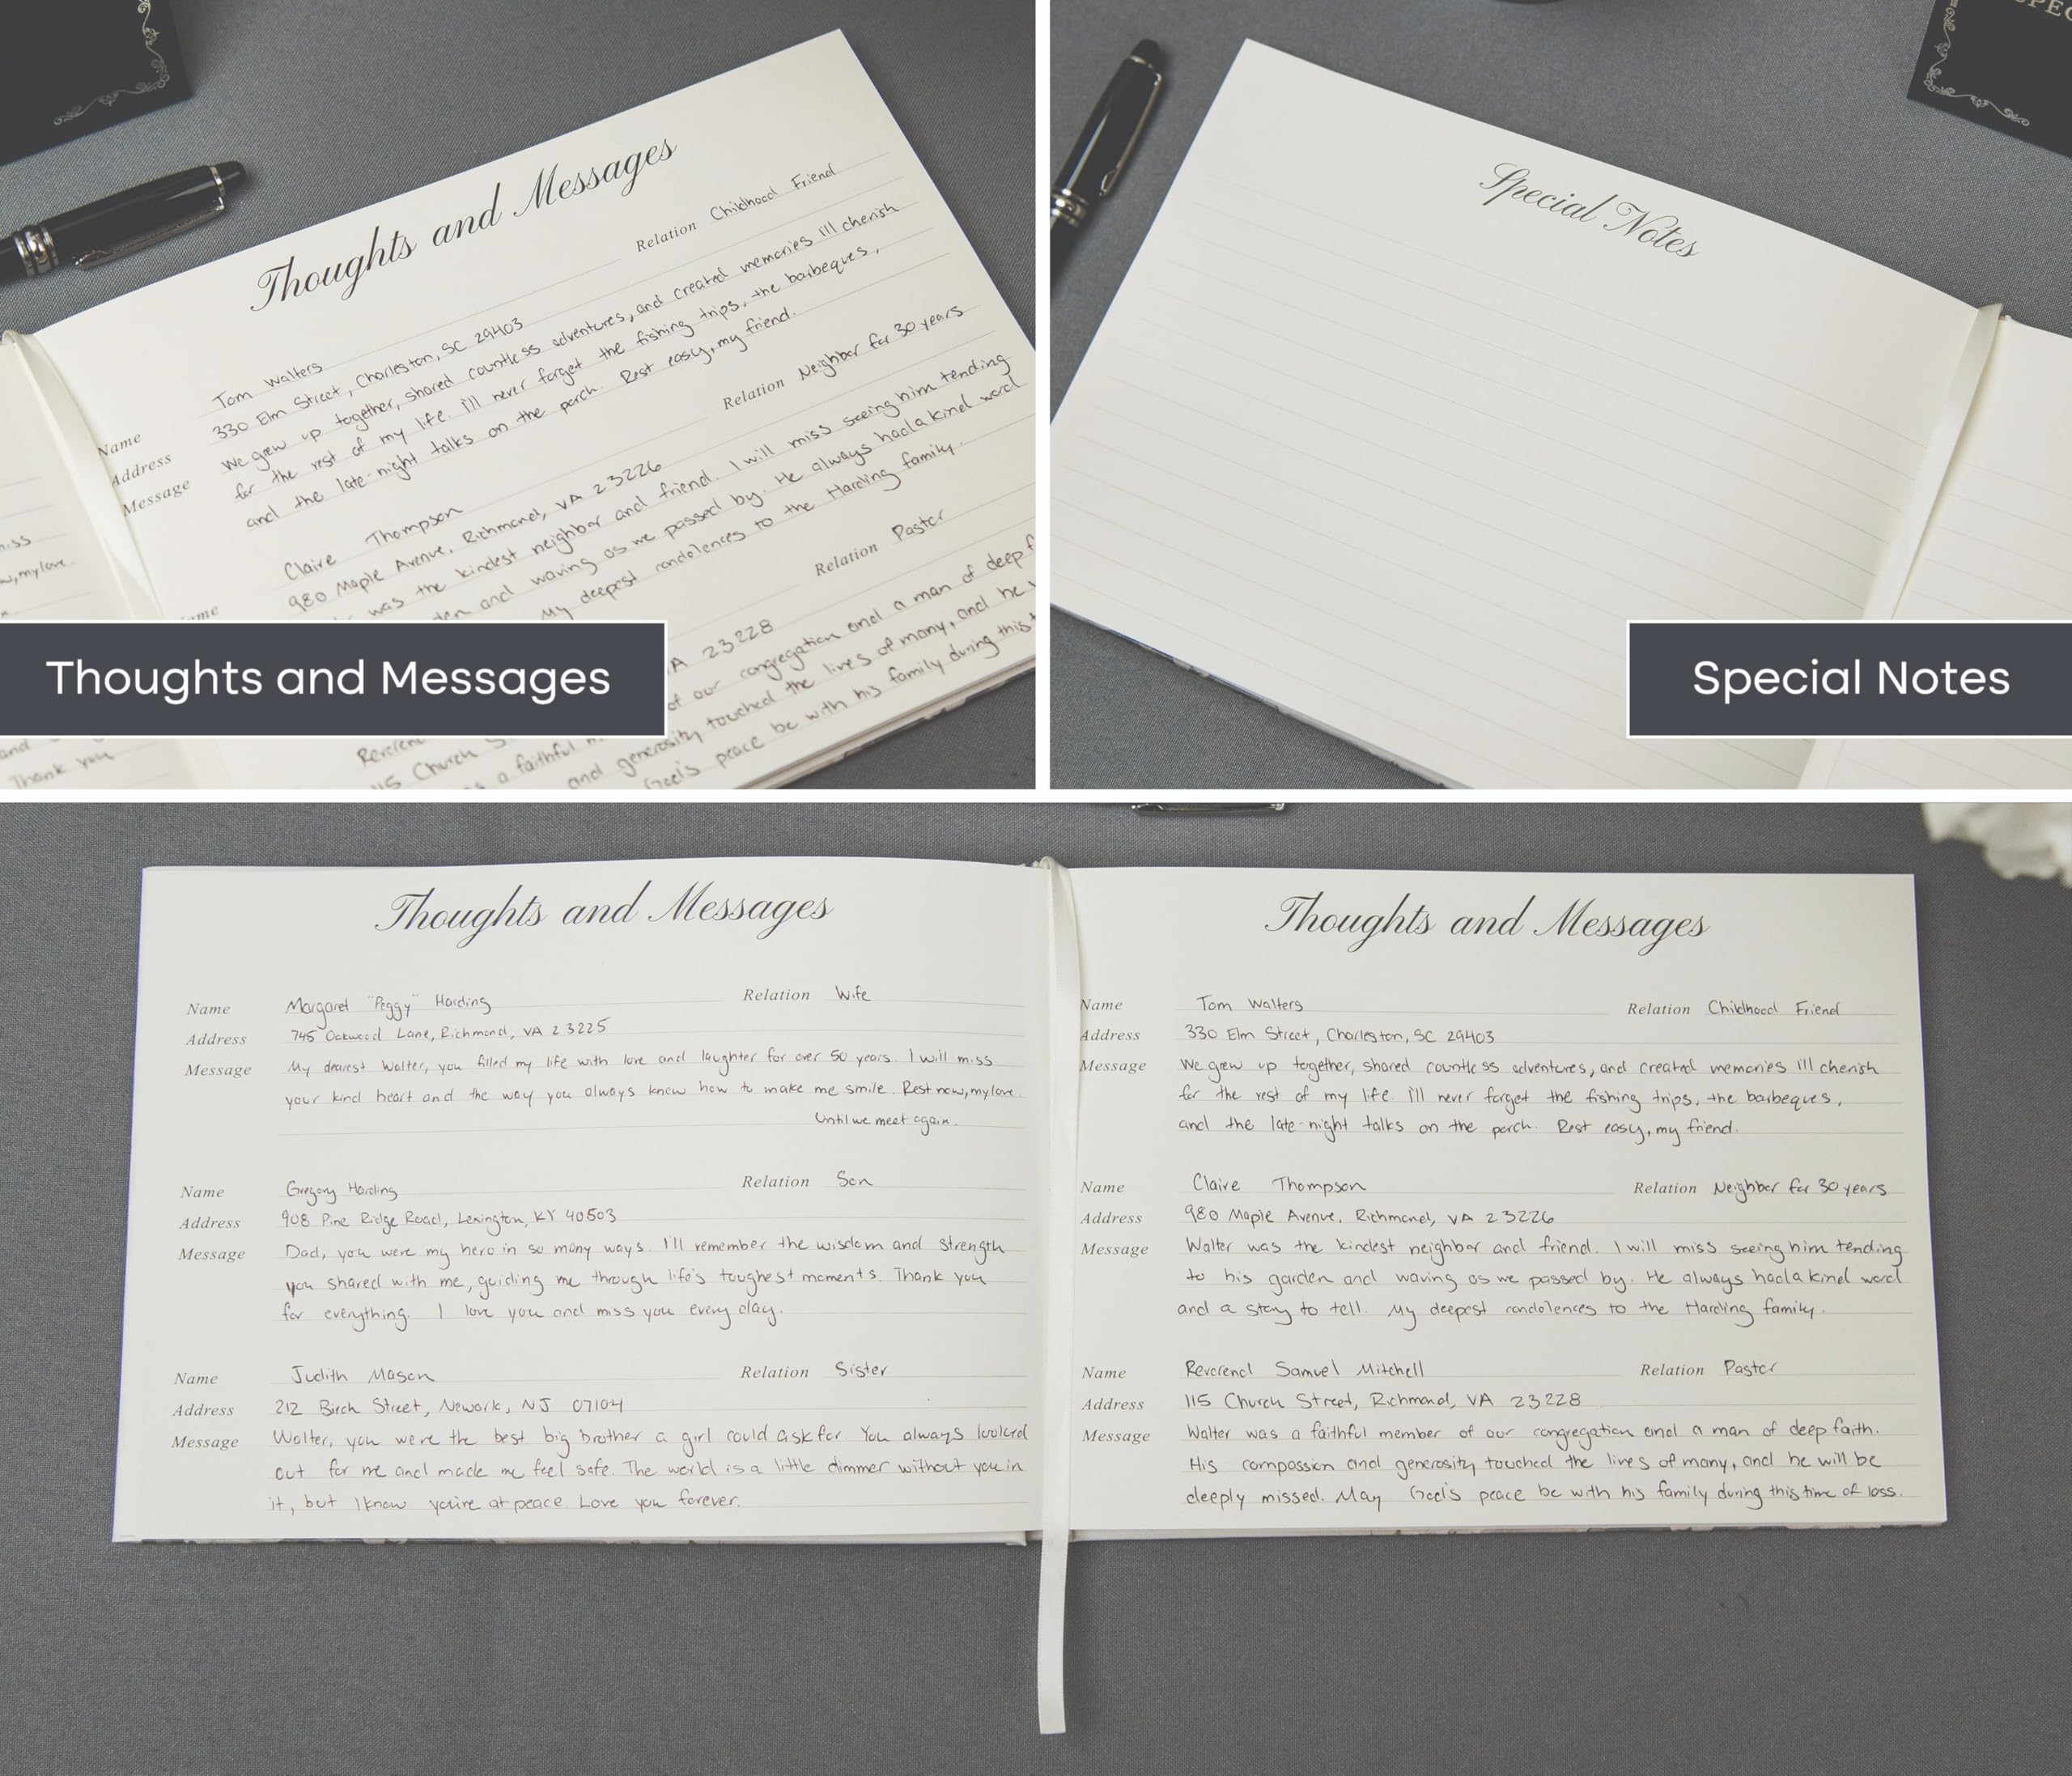 SPEC
Thoughts and Messages
Relation Childhood Friend
Name Tom Walters
Address 330 Elm Street, Charleston, SC 29403
Message We grew up together, shared countless adventures, and created memories I'll cherish
for the rest of my life. I'll never forget the fishing trips, the barbeques,
and the late-night talks on the porch. Rest easy, my friend.
Relation Neighbor for 30 years
Name Claire Thompson
980 Maple Avenue, Richmond, VA 23226
was the kindest neighbor and friend. I will miss seeing him tending
and waving as we passed by. He always had a kind word
My deepest condolences to the Harding family.
Relation Pastor
A 23228
115 Church S
of our congregation and a man of deep f
a faithful
and generosity touched the lives of many, and he
God's peace be with his family during this
iss
w, my love.
and
Thank you
Thoughts and Messages
Special Notes
Special Notes
Thoughts and Messages
Name Margaret "Peggy" Harding Relation Wife
Address 745 Oakwood Lane, Richmond, VA 23225
Message My dearest Walter, you filled my life with love and laughter for over 50 years. I will miss
your kind heart and the way you always knew how to make me smile. Rest now, my love.
Until we meet again.
Name Gregory Harding Relation Son
Address 908 Pine Ridge Road, Lexington, KY 40503
Message Dad, you were my hero in so many ways. I'll remember the wisdom and strength
you shared with me, guiding me through life's toughest moments. Thank you
for everything. I love you and miss you every day.
Name Judith Mason Relation Sister
Address 212 Birch Street, Newark, NJ 07104
Message Walter, you were the best big brother a girl could ask for. You always looked
out for me and made me feel safe. The world is a little dimmer without you in
it, but I know you're at peace. Love you forever.
Thoughts and Messages
Name Tom Walters Relation Childhood Friend
Address 330 Elm Street, Charleston, SC 29403
Message We grew up together, shared countless adventures, and created memories I'll cherish
for the rest of my life. I'll never forget the fishing trips, the barbeques,
and the late-night talks on the porch. Rest easy, my friend.
Name Claire Thompson Relation Neighbor for 30 years
Address 980 Maple Avenue, Richmond, VA 23226
Message Walter was the kindest neighbor and friend. I will miss seeing him tending
to his garden and waving as we passed by. He always had a kind word
and a story to tell. My deepest condolences to the Harding family.
Name Reverend Samuel Mitchell Relation Pastor
Address 115 Church Street, Richmond, VA 23228
Message Walter was a faithful member of our congregation and a man of deep faith.
His compassion and generosity touched the lives of many, and he will be
deeply missed. May God's peace be with his family during this time of loss.